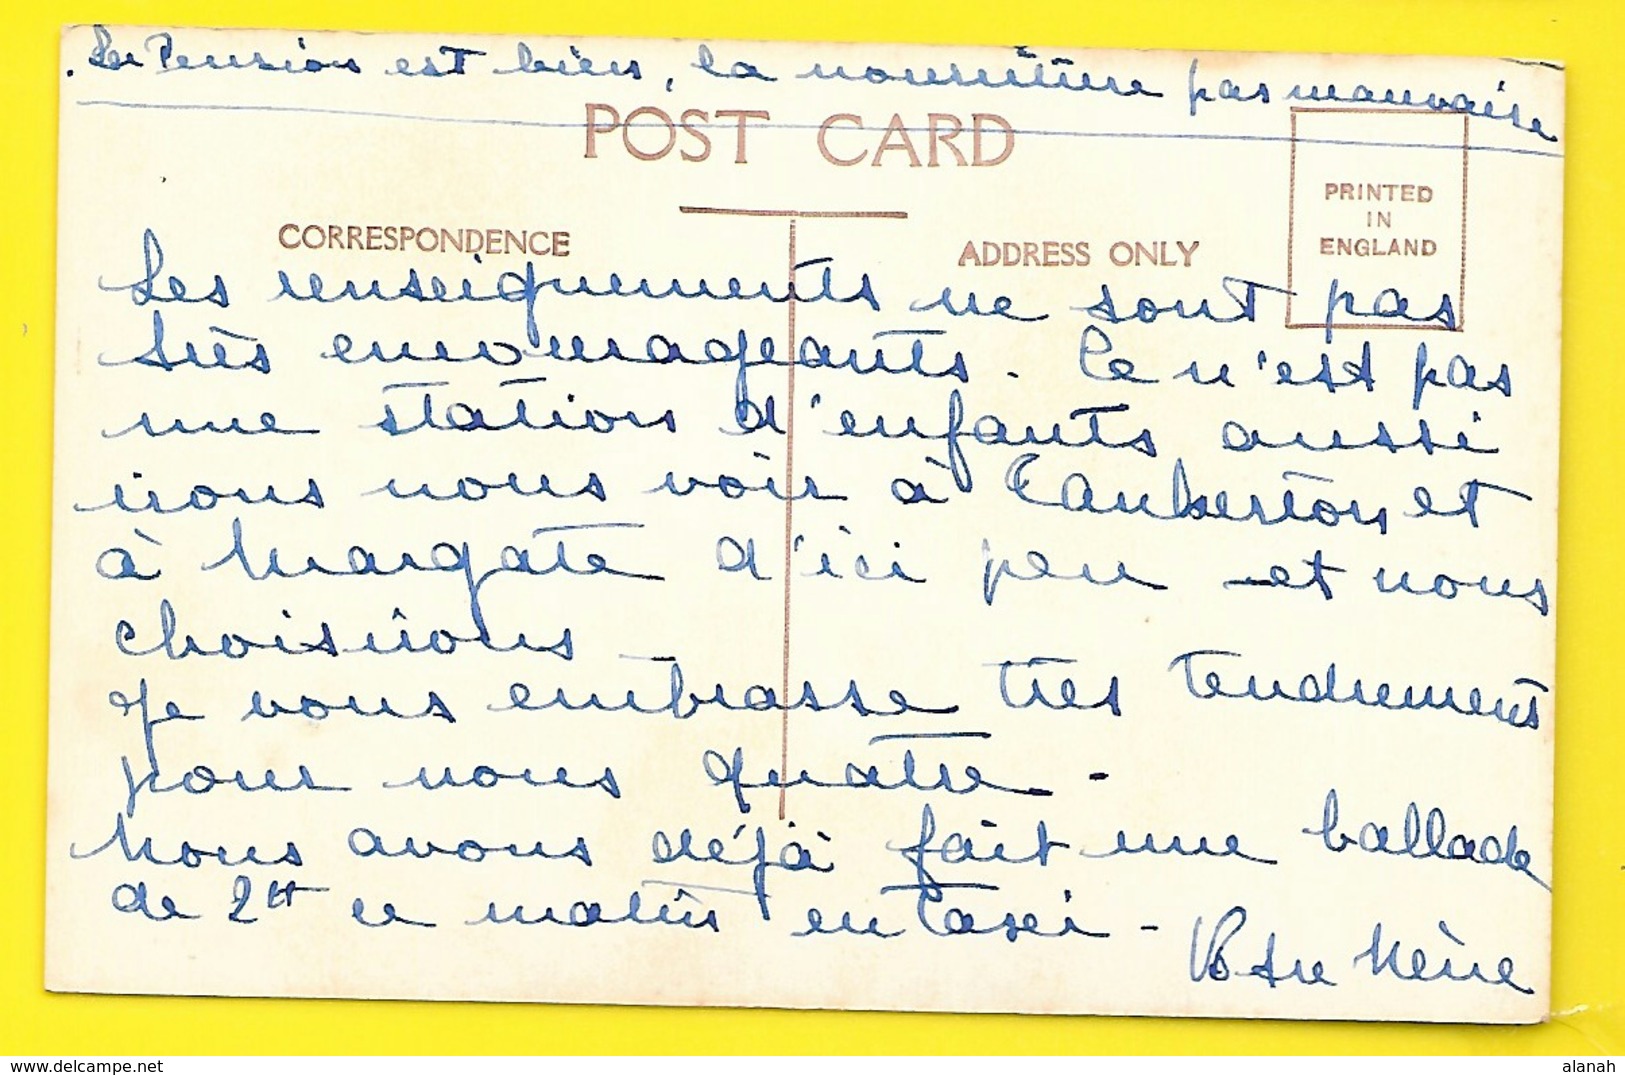 . La Pension est bien, la nourriture pas mauvaise
POST CARD
PRINTED
IN
ENGLAND
CORRESPONDENCE
ADDRESS ONLY
Les renseignements ne sont pas
très encourageants. Ce n'est pas
une station d'enfants aussi
irons nous voir à et
à Margate d'ici peu et nous
choisirons
Je vous embrasse très tendrement
pour nous quatre -
Nous avons déjà fait une ballade
de 2 ce matin en -
Votre
alanah